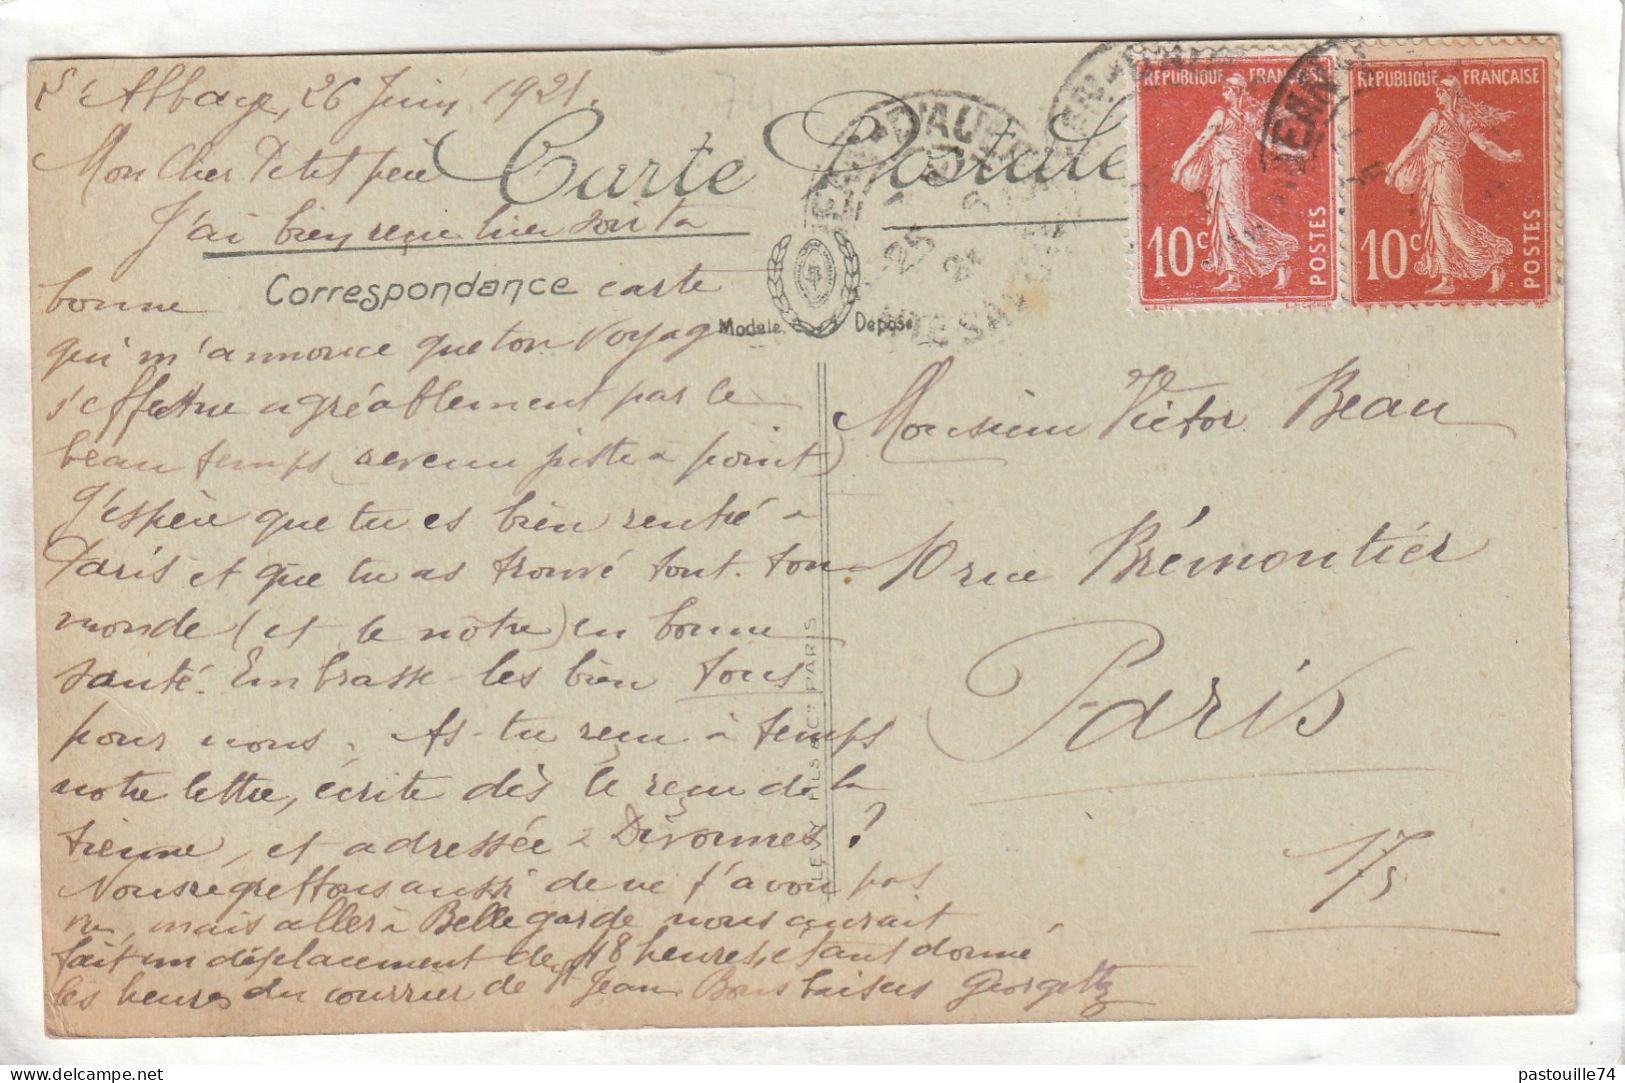 L'Abbaye, 26 Juin 1921.
Mon Cher Petit père
Carte Postale
J'ai bien reçu hier soir ta
bonne
Correspondance
carte
Modele Deposé
qui m'annonce que ton voyage
s'effectue agréablement par le
beau temps (revenu juste à point)
J'espère que tu es bien rentré à
Paris et que tu as trouvé tout ton
monde (et le nôtre) en bonne
santé. Embrasse-les bien tous
pour nous. As-tu reçu à temps
notre lettre, écrite dès le reçu de la
tienne, et adressée à Divonnes ?
Nous regrettons aussi de ne t'avoir pas
vu, mais aller à Bellegarde nous aurait
fait un déplacement de 48 heures, étant donné
les heures du courrier de St Jean Bons baisers Georgette
REPUBLIQUE FRANÇAISE
10c POSTES
REPUBLIQUE FRANÇAISE
10c POSTES
ST JEAN D'AULPH
25
21
HTE SAVOIE
Monsieur Victor Beau
10 rue Brémontier
Paris
17e
PARIS
pastouille74